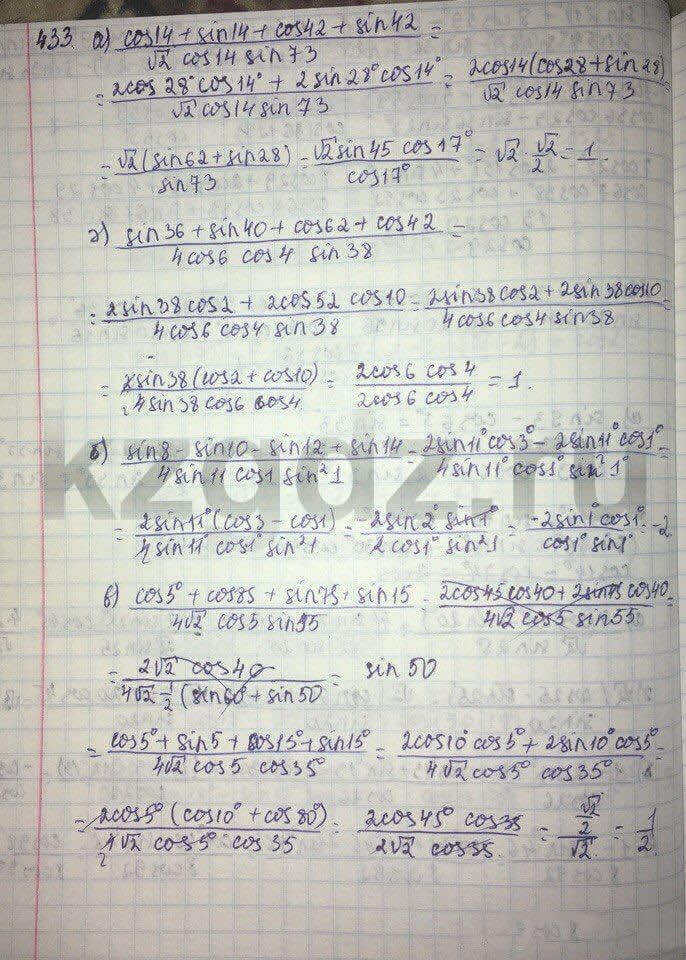 433. а) (cos14 + sin14 + cos42 + sin42)/(√2 cos14 sin73) =
= (2cos 28° cos14° + 2 sin28° cos14°)/(√2 cos14 sin73) = (2cos14(cos28 + sin 28))/(√2 cos14 sin73) =
= (√2 (sin62 + sin28))/(sin73) = (√2 sin45 cos17°)/(cos17°) = √2 · √2/2 = 1.
г) (sin36 + sin40 + cos62 + cos42)/(4cos6 cos4 sin38) =
= (2sin38 cos2 + 2cos52 cos10)/(4cos6 cos4 sin38) = (2sin38cos2 + 2sin38cos10)/(4cos6cos4sin38) =
= (2sin38 (cos2 + cos10))/(4sin38 cos6 cos4) = (2cos6 cos4)/(2cos6 cos4) = 1.
б) (sin8 - sin10 - sin12 + sin14)/(4sin11 cos1 sin²1) = (2sin11°cos3° - 2sin11°cos1°)/(4sin11°cos1° sin²1°) =
= (2sin11° (cos3 - cos1))/(4sin11° cos1° sin²1) = (-2sin2° sin1°)/(2cos1° sin²1) = (-2sin1° cos1°)/(cos1° sin1°) = -2
kzgdz.ru
в) (cos5° + cos85 + sin75 + sin15)/(4√2 cos5 sin55) = (2cos45 cos40 + 2sin45 cos40)/(4√2 cos5 sin55) =
= (2√2 cos40)/(4√2 ½ (sin60 + sin50) = sin50
= (cos5° + sin5 + cos15° + sin15°)/(4√2 cos5 cos35°) = (2cos10° cos5° + 2sin10° cos5°)/(4√2 cos5° cos35°) =
= (2cos5° (cos10° + cos80°))/(4√2 cos5° cos35) = (2cos45° cos35)/(2√2 cos35) = (√2/2)/√2 = 1/2